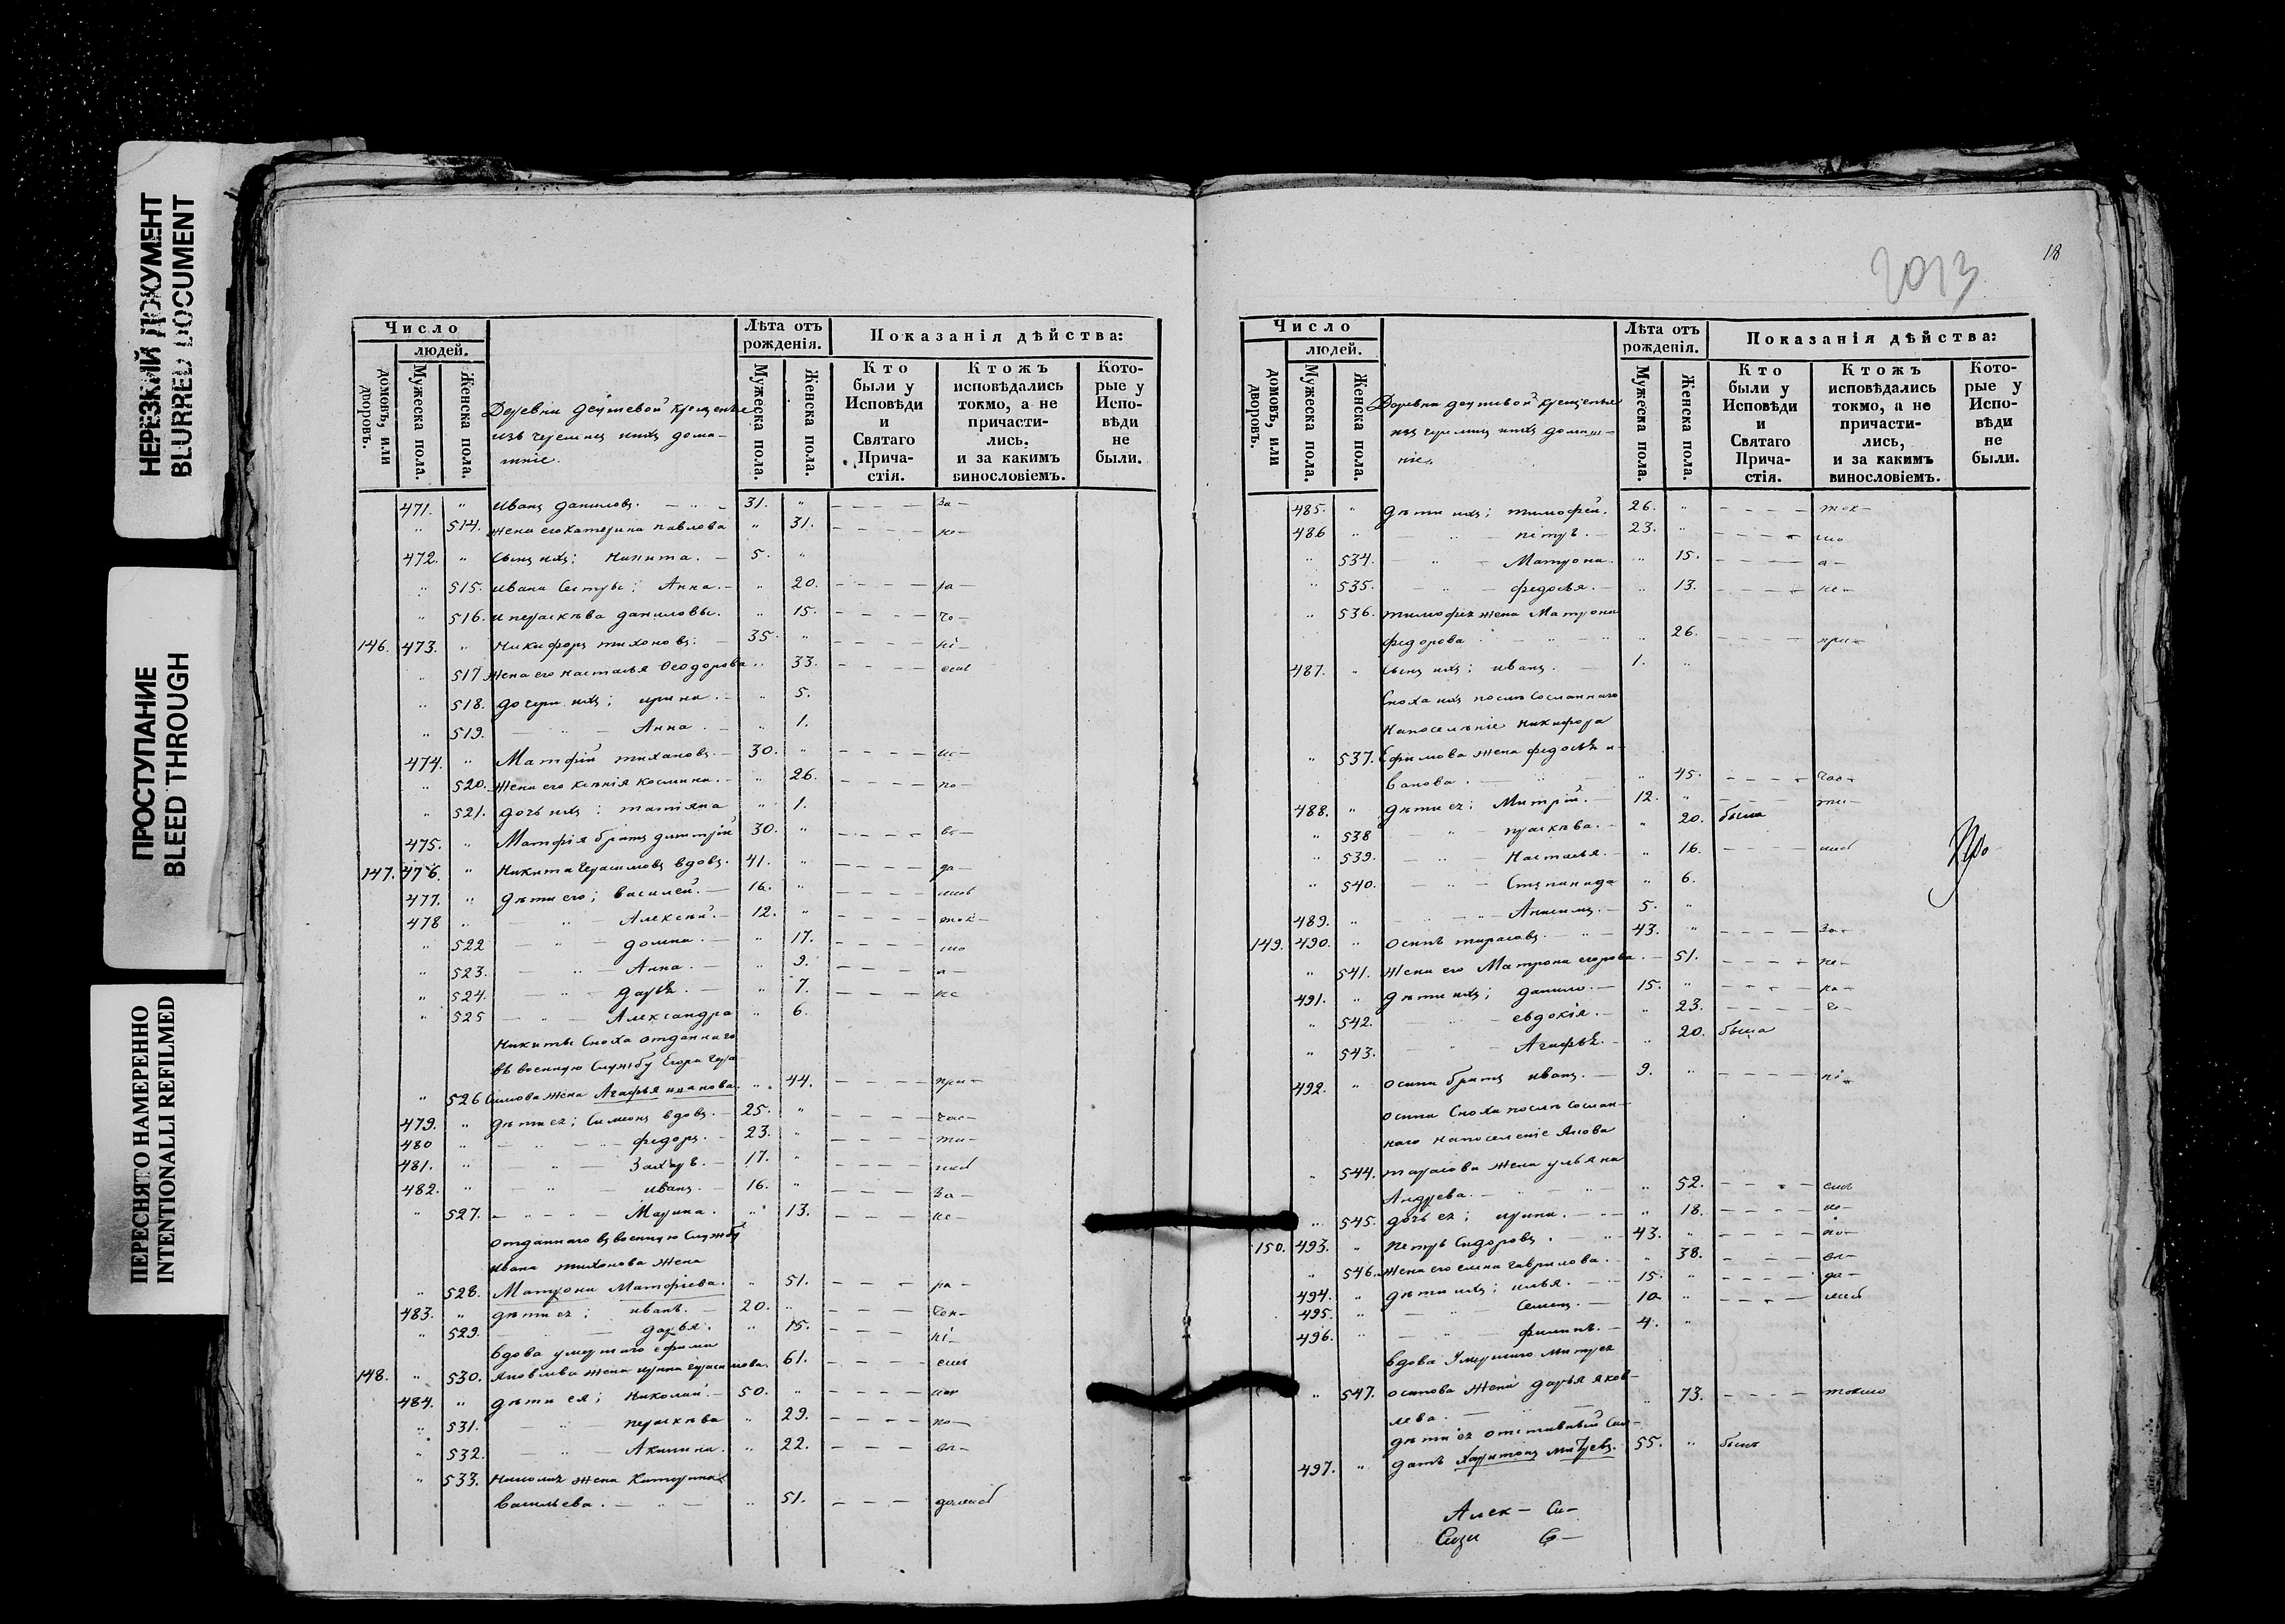 НЕРЕЗКИЙ ДОКУМЕНТ
BLURRED DOCUMENT
ПРОСТУПАНИЕ
BLEED THROUGH
ПЕРЕСНЯТО НАМЕРЕННО
INTENTIONALLI REFILMED
Число
людей.
домовъ, или дворовъ.
Мужеска пола.
Женска пола.
Деревни крещеные
изъ нихъ дома-
шніе.
Лѣта отъ рожденія.
Мужеска пола.
Женска пола.
Показанія дѣйства:
Кто были у Исповѣди и Святаго Прича-стія.
Ктожъ исповѣдались токмо, а не причасти-лись. и за какимъ винословіемъ.
Кото-рые у Испо-вѣди не были.
471. " Иванъ Даниловъ. 31. " За-
" 514. Жена его Катерина Павлова " 31. не-
472. " Сынъ ихъ: Никита. 5. "
" 515. Ивана Сестры: Анна. " 20. ра-
" 516. и Параскѣва Даниловы. " 15. че-
146. 473. " Никифоръ Тихоновъ: 35. " ні-
" 517. Жена его Настасья Ѳеодорова " 33. емъ
" 518. дочери ихъ; Ирина. " 5.
" 519. Анна. " 1.
474. " Матфій Тихоновъ. 30. " ис-
" 520. Жена его Ксенія Космина. " 26. по-
" 521. дочь ихъ: Татіяна " 1.
475. " Матфія братъ Димитрій 30. " вѣ-
147. 476. " Никита Герасимовъ вдовъ. 41. " да-
477. " дѣти его; Василей. 16. " лись
478 " Алексѣй. 12. " ток-
" 522 Домна. " 17. мо
" 523. Анна. " 9. а-
" 524. Дарья. " 7. не
" 525 Александра " 6.
Никиты Сноха отданнаго
въ военную Службу Егора Гера-
" 526 симова жена Агафья Иванова. " 44. при-
479. " дѣти ея; Симеонъ вдовъ. 25. " час-
480 " Федоръ. 23. " ти-
481. " Захаръ. 17. " лись
482. " Иванъ. 16. " За-
" 527. Марина. " 13. не-
отданнаго въ военную Службу
Ивана Тихонова жена
" 528. Матрона Матфіева. " 51. ра-
483. " дѣти ея; Иванъ. 20. " чен-
" 529. Дарья. " 15. ні-
Вдова умершаго Ефима
148. " 530. Яковлева жена Ирина Герасимова. 61. емъ
484. " дѣти ея; Николай. 50. " ис-
" 531. Параскѣва " 29. по-
" 532. Акилина. " 22. вѣ-
" 533. Николая жена Катерина
Васильева. " 51. дались
2013
18
Число
людей.
домовъ, или дворовъ.
Мужеска пола.
Женска пола.
Деревни крещеные
изъ нихъ домаш-
ніе.
Лѣта отъ рожденія.
Мужеска пола.
Женска пола.
Показанія дѣйства:
Кто были у Исповѣди и Святаго Прича-стія.
Ктожъ исповѣдались токмо, а не причасти-лись, и за какимъ винословіемъ.
Кото-рые у Испо-вѣди не были.
485. " дѣти ихъ; Тимофей. 26. " ток-
486 " Петръ. 23. " мо
" 534. Матрона. " 15. а-
" 535. Федосья. " 13. не-
" 536. Тимофея жена Матрона
Федорова " 26. при-
487. " Сынъ ихъ; Иванъ. 1. "
Сноха ихъ послѣ Сосланнаго
на поселеніе Никифора
" 537. Ефимова жена Федосья И-
ванова. " 45. час-
488. " дѣти ея; Митрій. 12. " ти-
" 538 Праскѣва. " 20. была
" 539. Настасья. " 16. лись
" 540. Степанида " 6.
489. " Анисимъ. 5. "
149. 490. " Осипъ Тарасовъ. 43. " За-
" 541. Жена его Матрона Егорова. 51. не-
491. " дѣти ихъ; Данило. 15. " ра-
" 542. Евдокія. " 23. че-
" 543. Агафья. " 20. была
492. " Осипа братъ Иванъ. 9. " ні-
Осипа Сноха послѣ Сослан-
наго на поселеніе Якова
" 544. Тарасова жена Ульяна
Андреева. " 52. емъ
" 545. дочь ея; Ирина. " 18. ис-
150. 493. " Петръ Сидоровъ. 43. " по-
" 546. Жена его Елена Гаврилова. 38. вѣ-
494. " дѣти ихъ; Илья. 15. " да-
495. " Семенъ. 10 " лись
496. " Филипъ. 4. "
вдова Умершаго Митрея
" 547. Осипова жена Дарья Яков-
лева. " 73. токмо
дѣти ея отставный Сол-
497. " датъ Харитонъ Митревъ. 55. " былъ
Алек- Си-